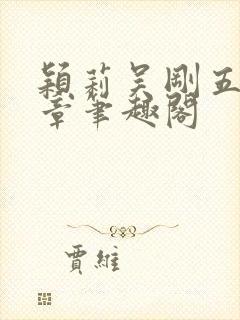 穎莉吴剛五
章筆趣閣
賈維